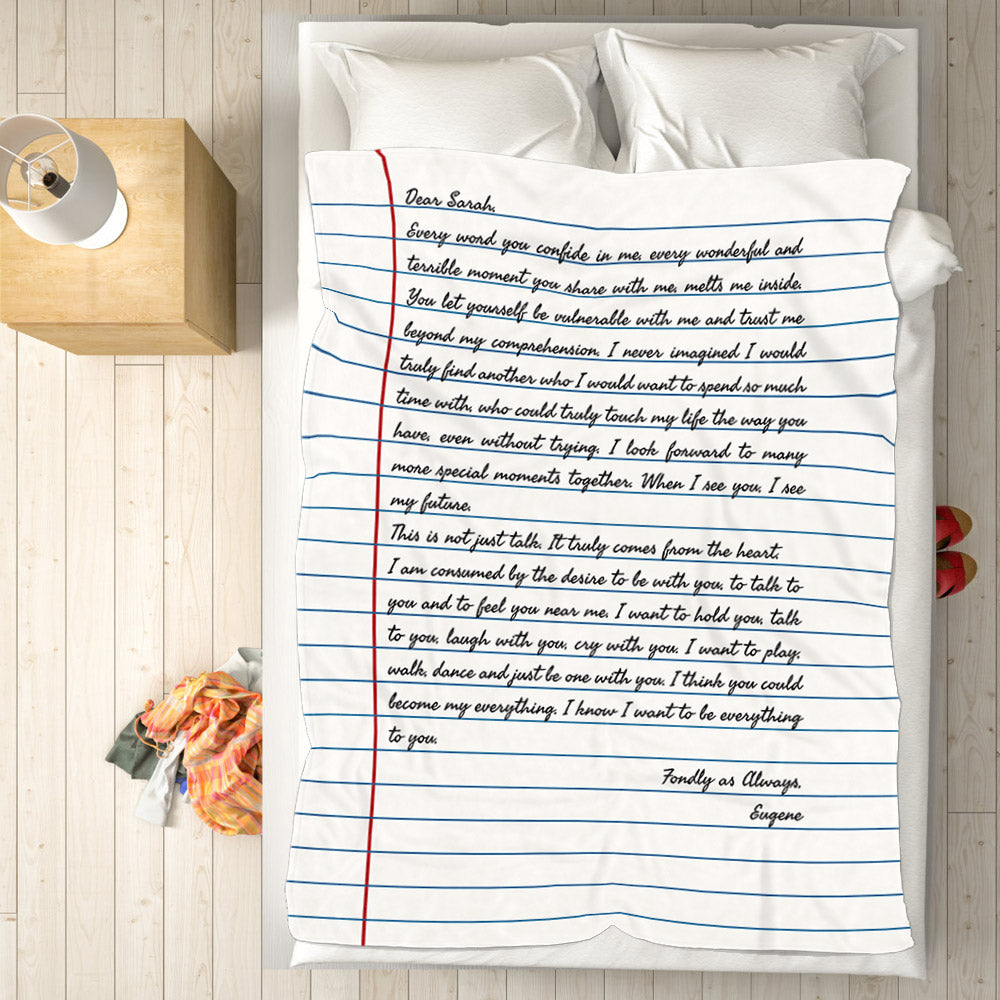 Dear Sarah,
Every word you confide in me, every wonderful and
terrible moment you share with me, melts me inside.
You let yourself be vulnerable with me and trust me
beyond my comprehension. I never imagined I would
truly find another who I would want to spend so much
time with, who could truly touch my life the way you
have, even without trying. I look forward to many
more special moments together. When I see you, I see
my future.
This is not just talk. It truly comes from the heart.
I am consumed by the desire to be with you, to talk to
you and to feel you near me. I want to hold you, talk
to you, laugh with you, cry with you. I want to play,
walk, dance and just be one with you. I think you could
become my everything. I know I want to be everything
to you.
Fondly as Always,
Eugene